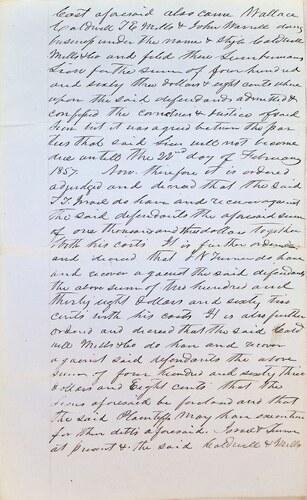 Cost aforesaid also came Wallace
Caldwell T E Mills & John Warnell doing
business under the name & style Caldwell
Mills & Co and filed their
Lien for the sum of four hundred
and sixty three dollars & eight cents where
upon the said defendants admitted &
confessed the correctness & justice of said
lien but it was agreed between the par
ties that said lien will not become
due untill the 22nd day of February
1857. Now therefore it is ordered
adjudged and decreed that the said
Israel do have and recover against
the said defendants the aforesaid sum
of one thousand and three dollars together
with his costs It is further ordered
and decreed that N Turner do have
and recover against the said defendants
the above sum of two hundred and
thirty eight dollars and sixty two
cents with his costs It is also further
ordered and decreed that the said Cald
well Mills & Co do have and recover
against said defendants the above
sum of four hundred and sixty three
dollars and Eight cents that the
liens aforesaid be and that
the said Plaintiffs may have execution
for their debts aforesaid. Israel & Turner
at present & the said Caldwell & Mills